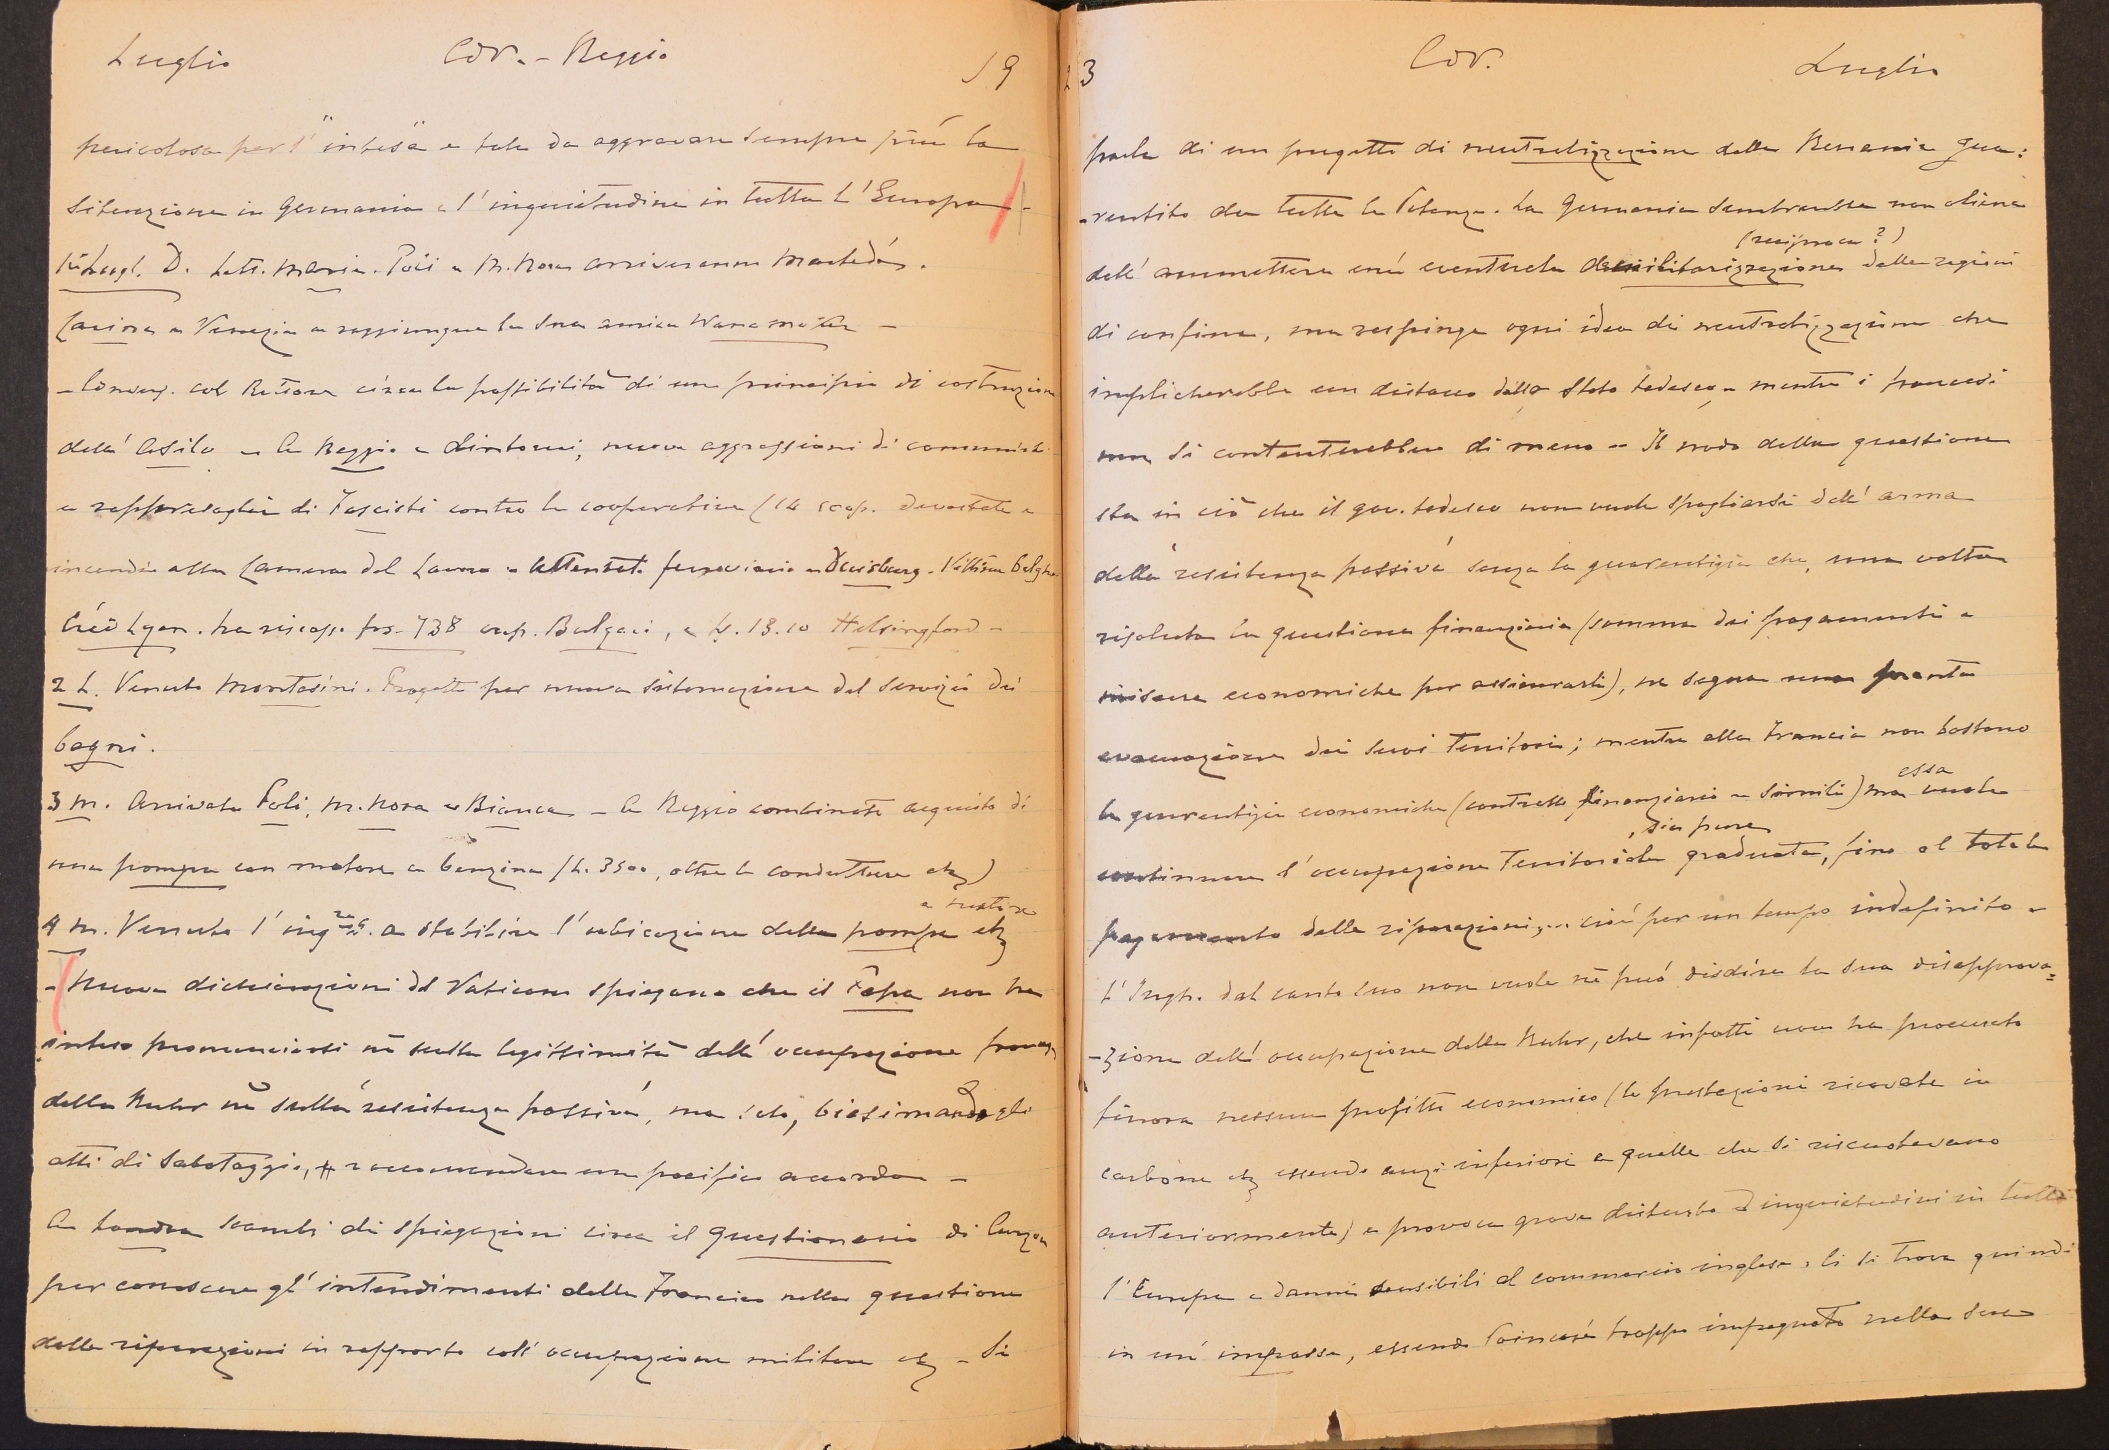 Luglio Cav. - Reggio 19
pericolosa per l' "intesa" e tale da aggravare sempre più la
situazione in Germania e l'inquietudine in tutta l'Europa -
1° Lugl. D. Lett. Maria. Poli e M. Nora arriveranno Martedì.
a Venezia a raggiungere la sua amica Wanamaker -
- Convers. col Rettore circa la possibilità di un principio di costruzione
dell'Asilo - A Reggio e dintorni, nuove aggressioni di communisti
e rappresaglie di Fascisti contro le cooperative (14 coop. devastate e
incendio alla Camera del Lavoro - Attentato ferroviario a Duisburg. Vittime belghe
Créd Lyon. ha riscosso frs. 738 cup. Bulgari, e 18.10 Helsingford -
2 L. Venuto Montasini. Progetti per nuova sistemazione del servizio dei
bagni.
3 M. Arrivate Poli, M. Nora e Bianca - A Reggio combinato acquisto di
una pompa con motore a benzina (L. 3500, oltre le condutture etc)
4 M. Venuto l'ing. a stabilire l'ubicazione della pompa e motore etc
- Nuove dichiarazioni del Vaticano spiegano che il Papa non ha
inteso pronunciarsi nè sulla legittimità dell'occupazione francese
della Ruhr nè sulla resistenza passiva, ma solo, biasimando gli
atti di sabotaggio, raccomandare un pacifico accordo -
A Londra scambi di spiegazioni circa il questionario di Curzon
per conoscere gl'intendimenti della Francia nella questione
delle riparazioni in rapporto coll'occupazione militare etc - Si
23 Cav. Luglio
parla di un progetto di neutralizzazione della Renania gua:
-rentito da tutte le Potenze. La Germania sembrerebbe non aliena
dall'ammettere un'eventuale demilitarizzazione (reciproca?) delle regioni
di confine, ma respinge ogni idea di neutralizzazione che
implicherebbe un distacco dallo Stato tedesco, - mentre i francesi
non si contenterebbero di meno - Il nodo della questione
sta in ciò che il gov. tedesco non vuole spogliarsi dell'arma
della resistenza passiva senza la guarentigia che, una volta
risoluta la questione finanziaria (somma dei pagamenti e
misure economiche per assicurarli), ne segua una pronta
evacuazione dei suoi territorii; mentre alla Francia non bastano
le guarentigie economiche (controllo finanziario e simili) ma essa vuole
continuare l'occupazione territoriale, sia pure graduata, fino al totale
pagamento delle riparazioni,... cioè per un tempo indefinito -
L'Ingh. dal canto suo non vuole nè può disdire la sua disapprova=
-zione dell'occupazione della Ruhr, che infatti non ha procurato
finora nessun profitto economico (le prestazioni ricavate in
carbone etc essendo anzi inferiori a quelle che si riscuotevano
anteriormente) e provoca grave disturbo ed inquietudini in tutta
l'Europa e danni sensibili al commercio inglese. Ci si trova quindi
in un'impasse, essendo Poincaré troppo impegnato nella sua